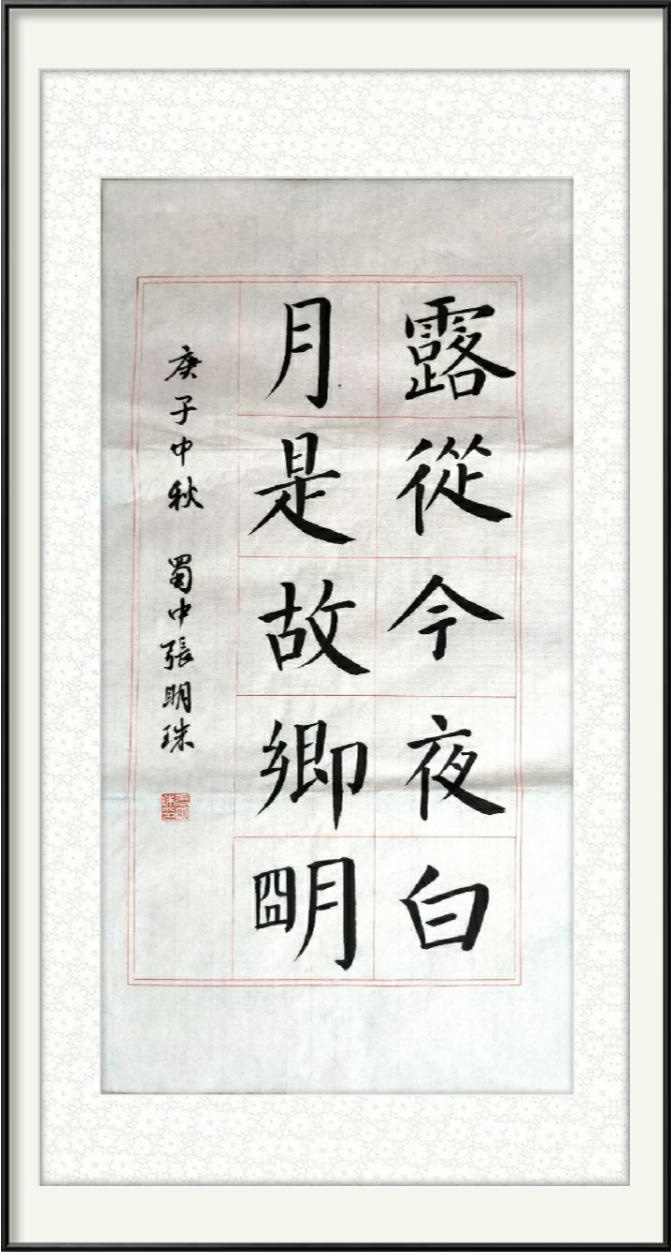 露從今夜白
月是故鄉明
庚子中秋 蜀中張明珠